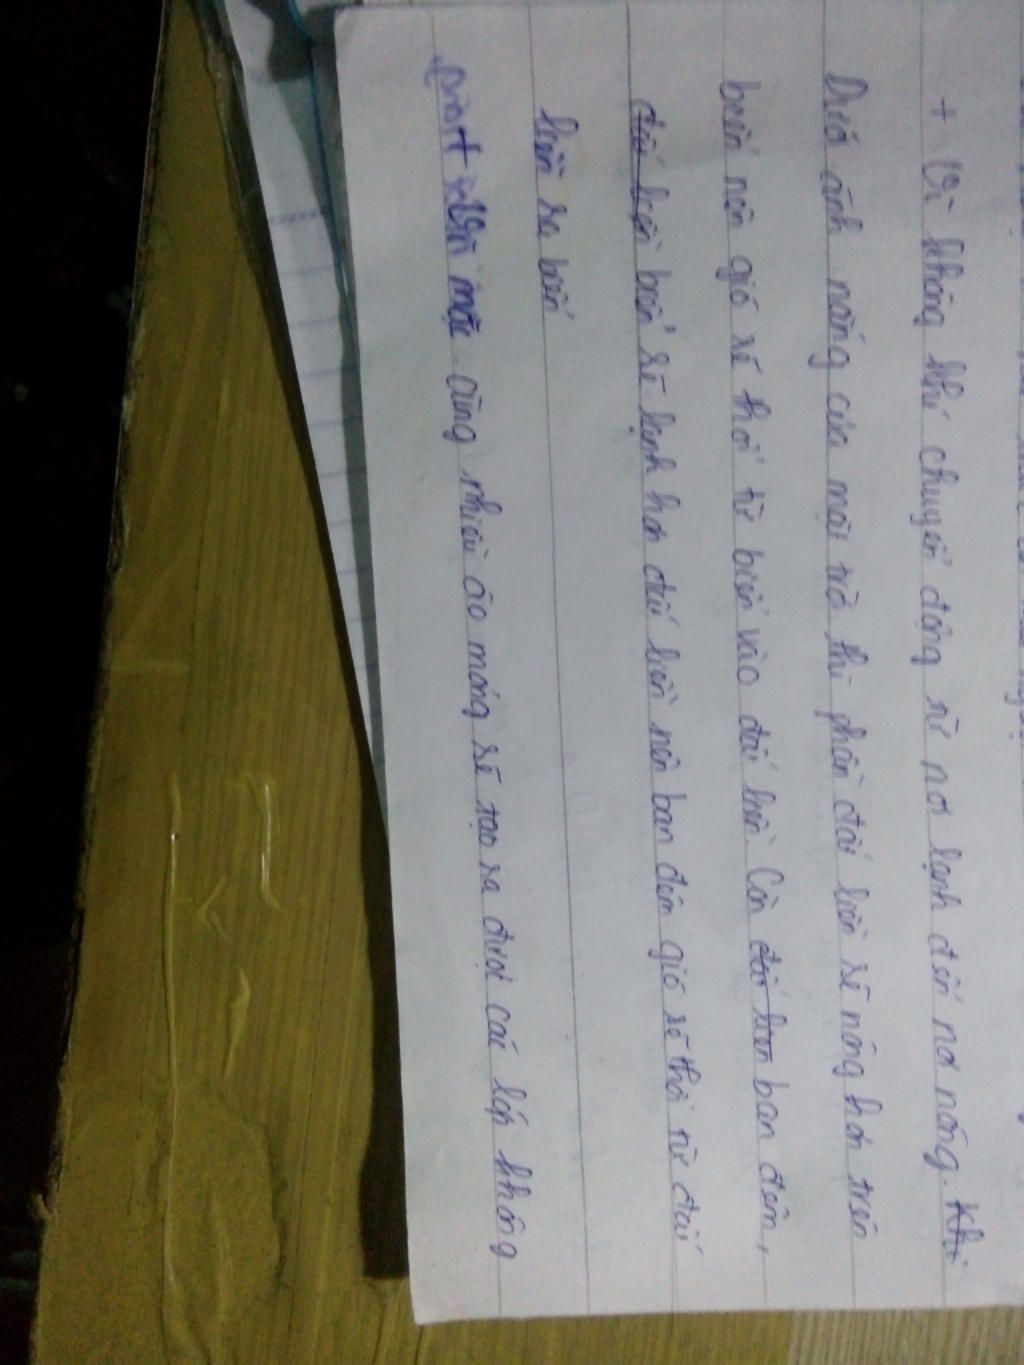 + Vì không khí chuyển động từ nơi lạnh đến nơi nóng. Khi
Dưới ánh nắng của mặt trời thì phần đất liền sẽ nóng hơn trên
biển nên gió sẽ thổi từ biển vào đất liền. Còn đất liền ban đêm,
đất liền biển sẽ lạnh hơn đất liền nên ban đêm gió sẽ thổi từ đất
liền ra biển
+ Vì mặc cùng nhiều áo mỏng sẽ tạo ra được các lớp không